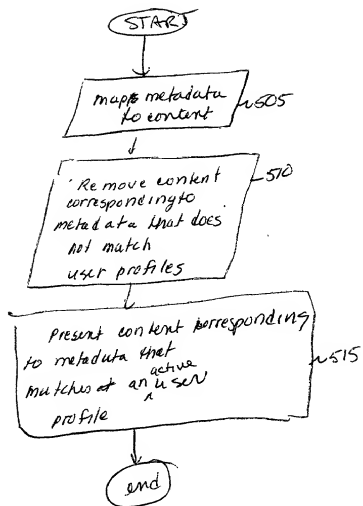 START
maps metadata
to content
505
Remove content
corresponding to
metadata that does
not match
user profiles
510
Present content corresponding
to metadata that
matches an active user
profile
515
end